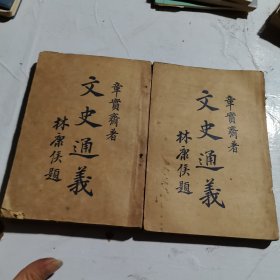 章實齋著
文史通義
林康侯題
章實齋著
文史通義
林康侯題